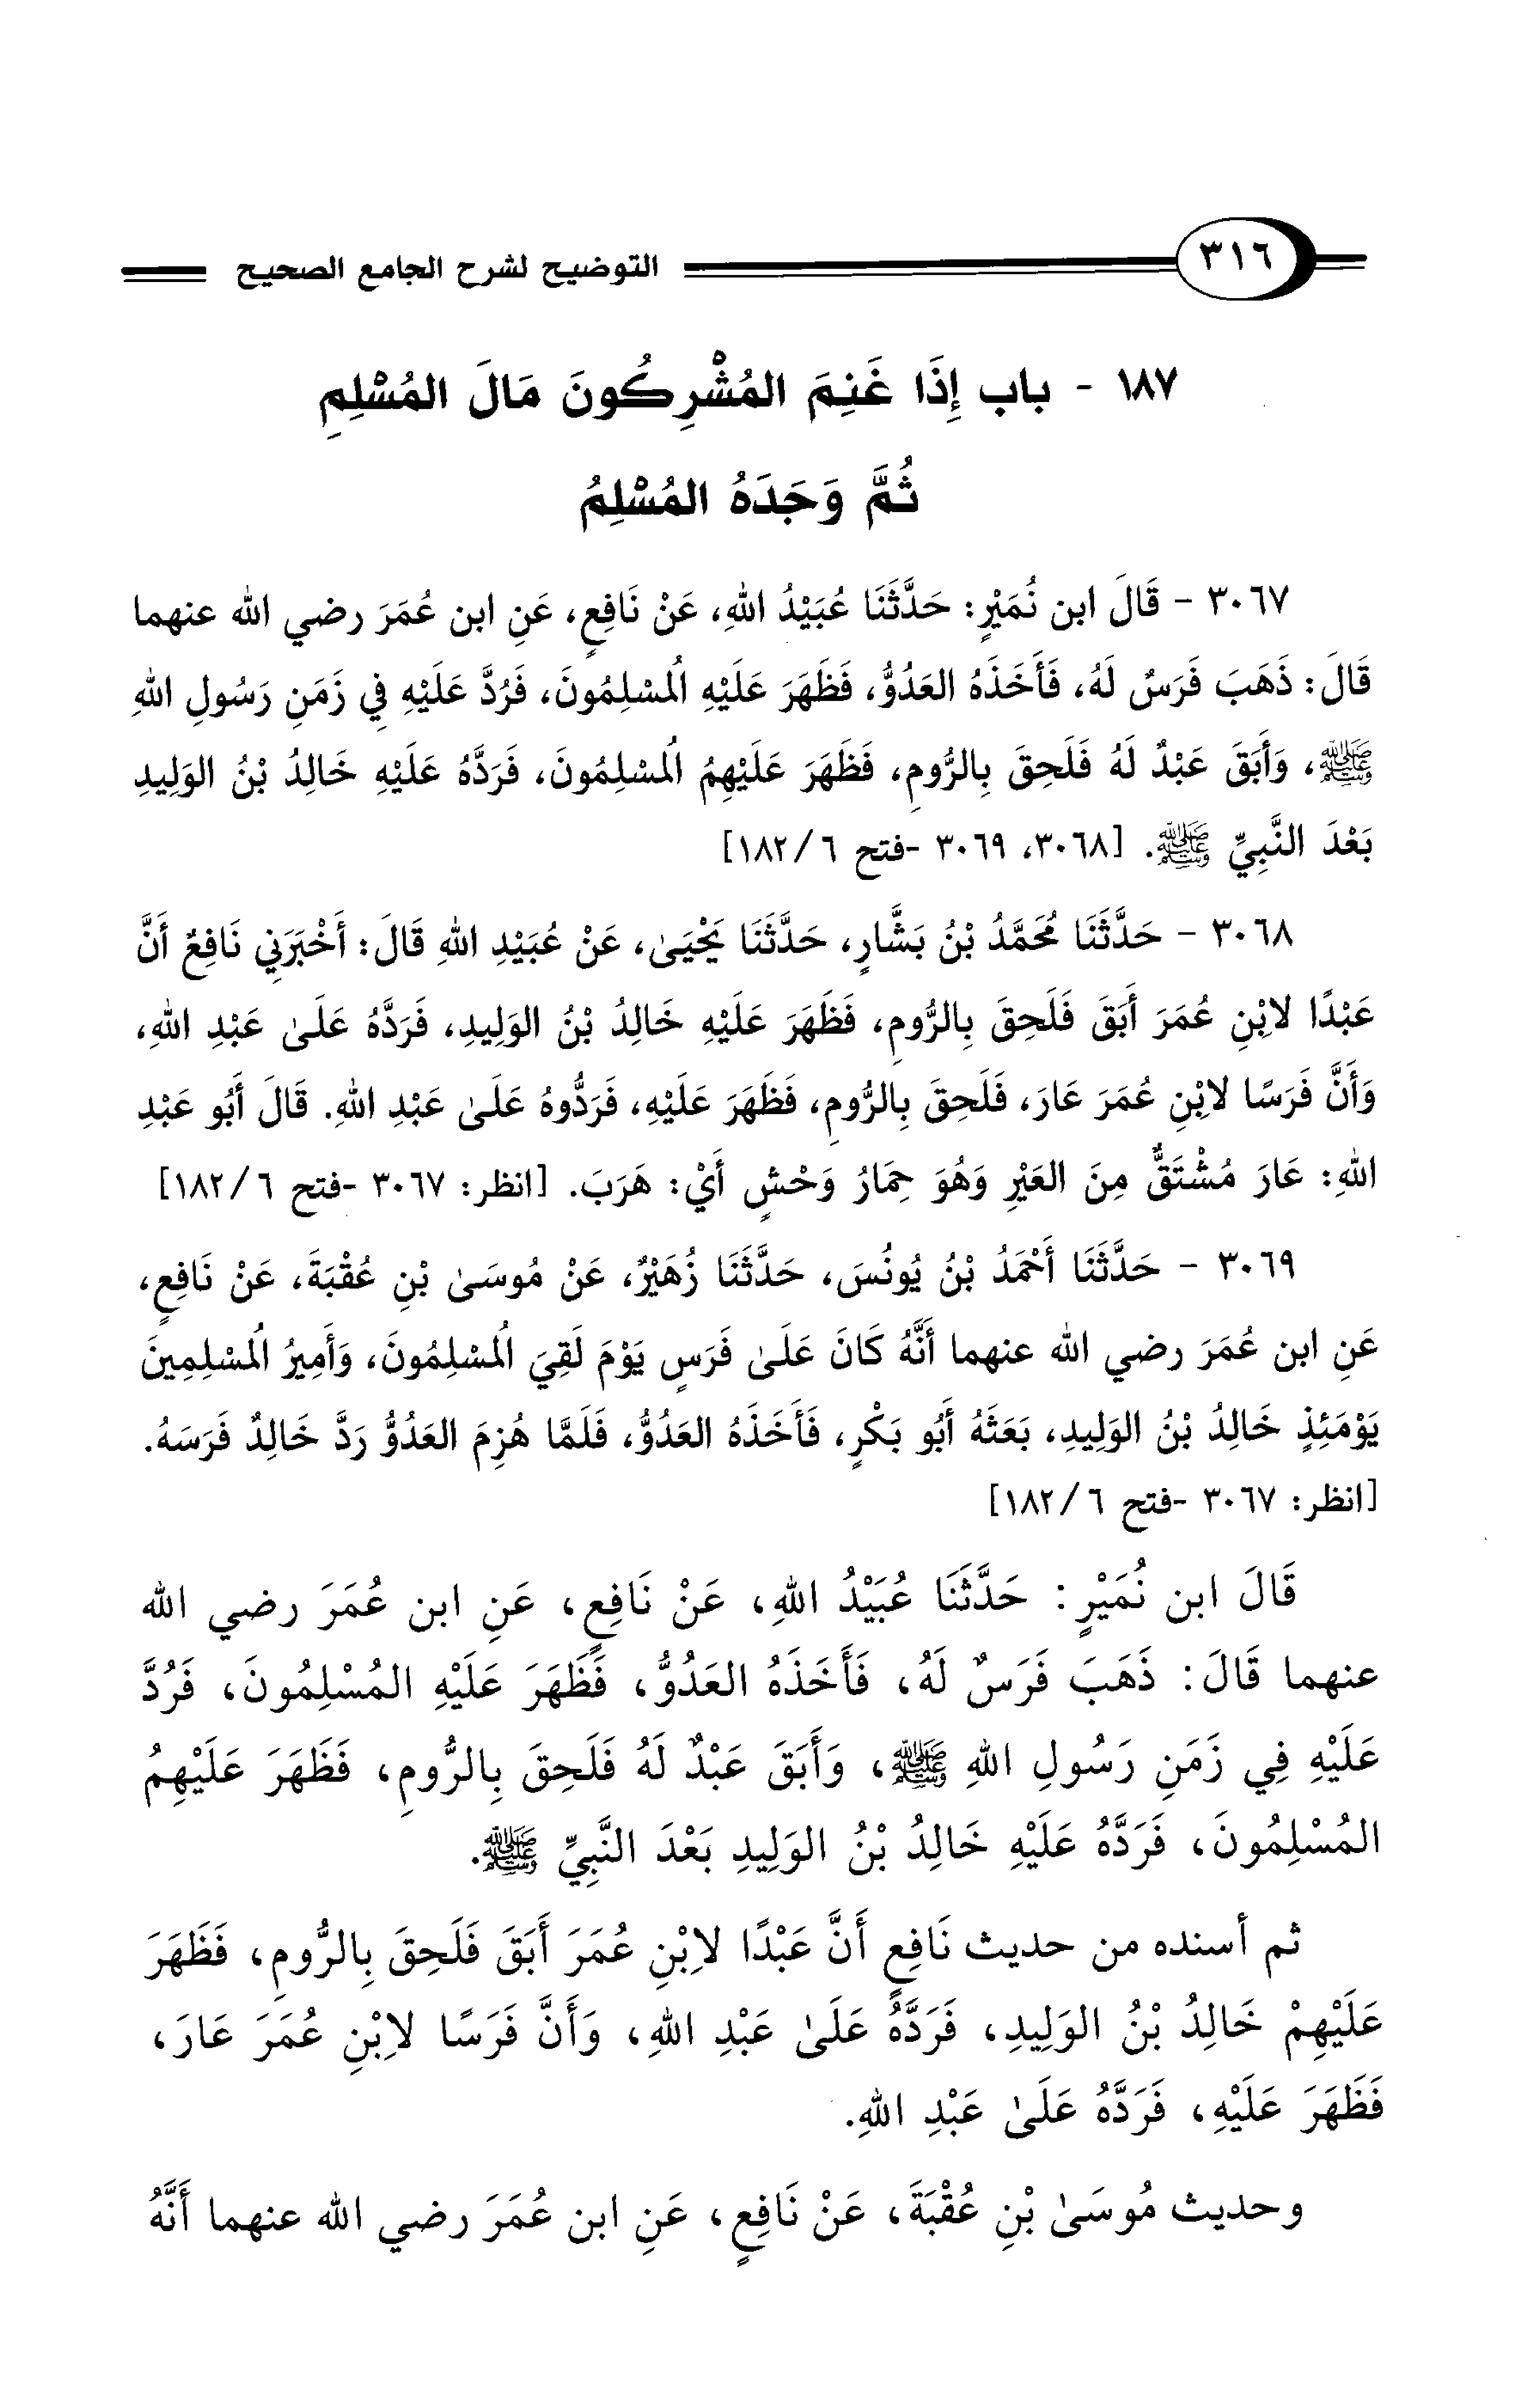 ٣١٦ التوضيح لشرح الجامع الصحيح
١٨٧ - باب إِذَا غَنِمَ المُشْرِكُونَ مَالَ المُسْلِمِ
ثُمَّ وَجَدَهُ المُسْلِمُ
٣٠٦٧ - قَالَ ابن نُمَيْرٍ: حَدَّثَنَا عُبَيْدُ اللهِ، عَنْ نَافِعٍ، عَنِ ابن عُمَرَ رضي الله عنهما
قَالَ: ذَهَبَ فَرَسٌ لَهُ، فَأَخَذَهُ العَدُوُّ، فَظَهَرَ عَلَيْهِ الُمسْلِمُونَ، فَرُدَّ عَلَيْهِ فِي زَمَنِ رَسُولِ اللهِ
ﷺ، وَأَبَقَ عَبْدٌ لَهُ فَلَحِقَ بِالرُّومِ، فَظَهَرَ عَلَيْهِمُ الُمسْلِمُونَ، فَرَدَّهُ عَلَيْهِ خَالِدُ بْنُ الوَلِيدِ
بَعْدَ النَّبِيِّ ﷺ. [٣٠٦٨، ٣٠٦٩ -فتح ٦/ ١٨٢]
٣٠٦٨ - حَدَّثَنَا مُحَمَّدُ بْنُ بَشَّارٍ، حَدَّثَنَا يَحْيَىٰ، عَنْ عُبَيْدِ اللهِ قَالَ: أَخْبَرَنِي نَافِعٌ أَنَّ
عَبْدًا لاِبْنِ عُمَرَ أَبَقَ فَلَحِقَ بِالرُّومِ، فَظَهَرَ عَلَيْهِ خَالِدُ بْنُ الوَلِيدِ، فَرَدَّهُ عَلَىٰ عَبْدِ اللهِ،
وَأَنَّ فَرَسًا لاِبْنِ عُمَرَ عَارَ، فَلَحِقَ بِالرُّومِ، فَظَهَرَ عَلَيْهِ، فَرَدُّوهُ عَلَىٰ عَبْدِ اللهِ. قَالَ أَبُو عَبْدِ
اللهِ: عَارَ مُشْتَقٌّ مِنَ العَيْرِ وَهُوَ حِمَارُ وَحْشٍ أَيْ: هَرَبَ. [انظر: ٣٠٦٧ -فتح ٦/ ١٨٢]
٣٠٦٩ - حَدَّثَنَا أَحْمَدُ بْنُ يُونُسَ، حَدَّثَنَا زُهَيْرٌ، عَنْ مُوسَىٰ بْنِ عُقْبَةَ، عَنْ نَافِعٍ،
عَنِ ابن عُمَرَ رضي الله عنهما أَنَّهُ كَانَ عَلَىٰ فَرَسٍ يَوْمَ لَقِيَ الُمسْلِمُونَ، وَأَمِيرُ الُمسْلِمِينَ
يَوْمَئِذٍ خَالِدُ بْنُ الوَلِيدِ، بَعَثَهُ أَبُو بَكْرٍ، فَأَخَذَهُ العَدُوُّ، فَلَمَّا هُزِمَ العَدُوُّ رَدَّ خَالِدٌ فَرَسَهُ.
[انظر: ٣٠٦٧ -فتح ٦/ ١٨٢]
قَالَ ابن نُمَيْرٍ: حَدَّثَنَا عُبَيْدُ اللهِ، عَنْ نَافِعٍ، عَنِ ابن عُمَرَ رضي الله
عنهما قَالَ: ذَهَبَ فَرَسٌ لَهُ، فَأَخَذَهُ العَدُوُّ، فَظَهَرَ عَلَيْهِ المُسْلِمُونَ، فَرُدَّ
عَلَيْهِ فِي زَمَنِ رَسُولِ اللهِ ﷺ، وَأَبَقَ عَبْدٌ لَهُ فَلَحِقَ بِالرُّومِ، فَظَهَرَ عَلَيْهِمُ
المُسْلِمُونَ، فَرَدَّهُ عَلَيْهِ خَالِدُ بْنُ الوَلِيدِ بَعْدَ النَّبِيِّ ﷺ.
ثم أسنده من حديث نَافِعٍ أَنَّ عَبْدًا لاِبْنِ عُمَرَ أَبَقَ فَلَحِقَ بِالرُّومِ، فَظَهَرَ
عَلَيْهِمْ خَالِدُ بْنُ الوَلِيدِ، فَرَدَّهُ عَلَىٰ عَبْدِ اللهِ، وَأَنَّ فَرَسًا لاِبْنِ عُمَرَ عَارَ،
فَظَهَرَ عَلَيْهِ، فَرَدَّهُ عَلَىٰ عَبْدِ اللهِ.
وحديث مُوسَىٰ بْنِ عُقْبَةَ، عَنْ نَافِعٍ، عَنِ ابن عُمَرَ رضي الله عنهما أَنَّهُ